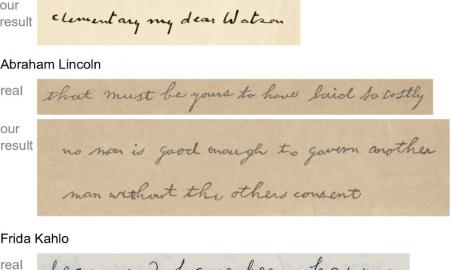 our
result
elementary my dear Watson
Abraham Lincoln
real
that must be yours to have laid so costly
our
result
no man is good enough to govern another
man without the others consent
Frida Kahlo
real